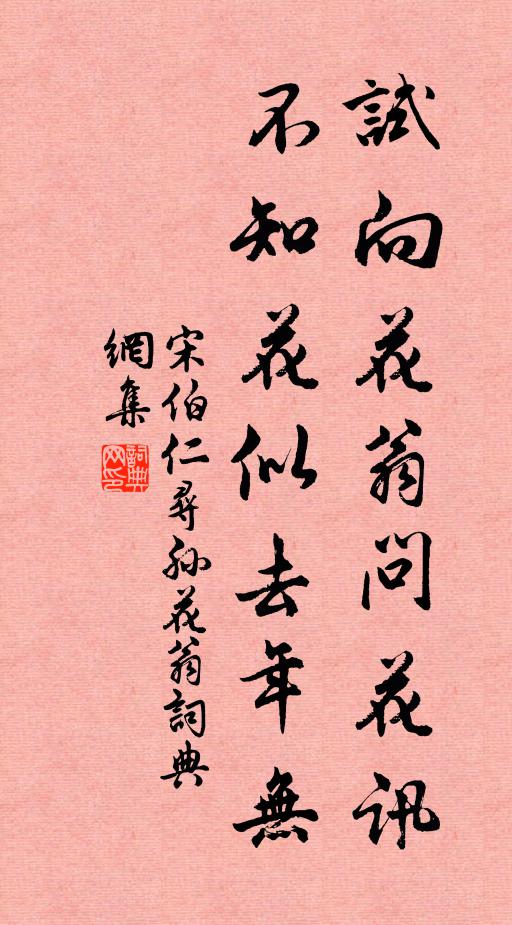 試向花翁問花訊
不知花似去年無
宋伯仁尋孫花翁詞典
網集
詞典
网印